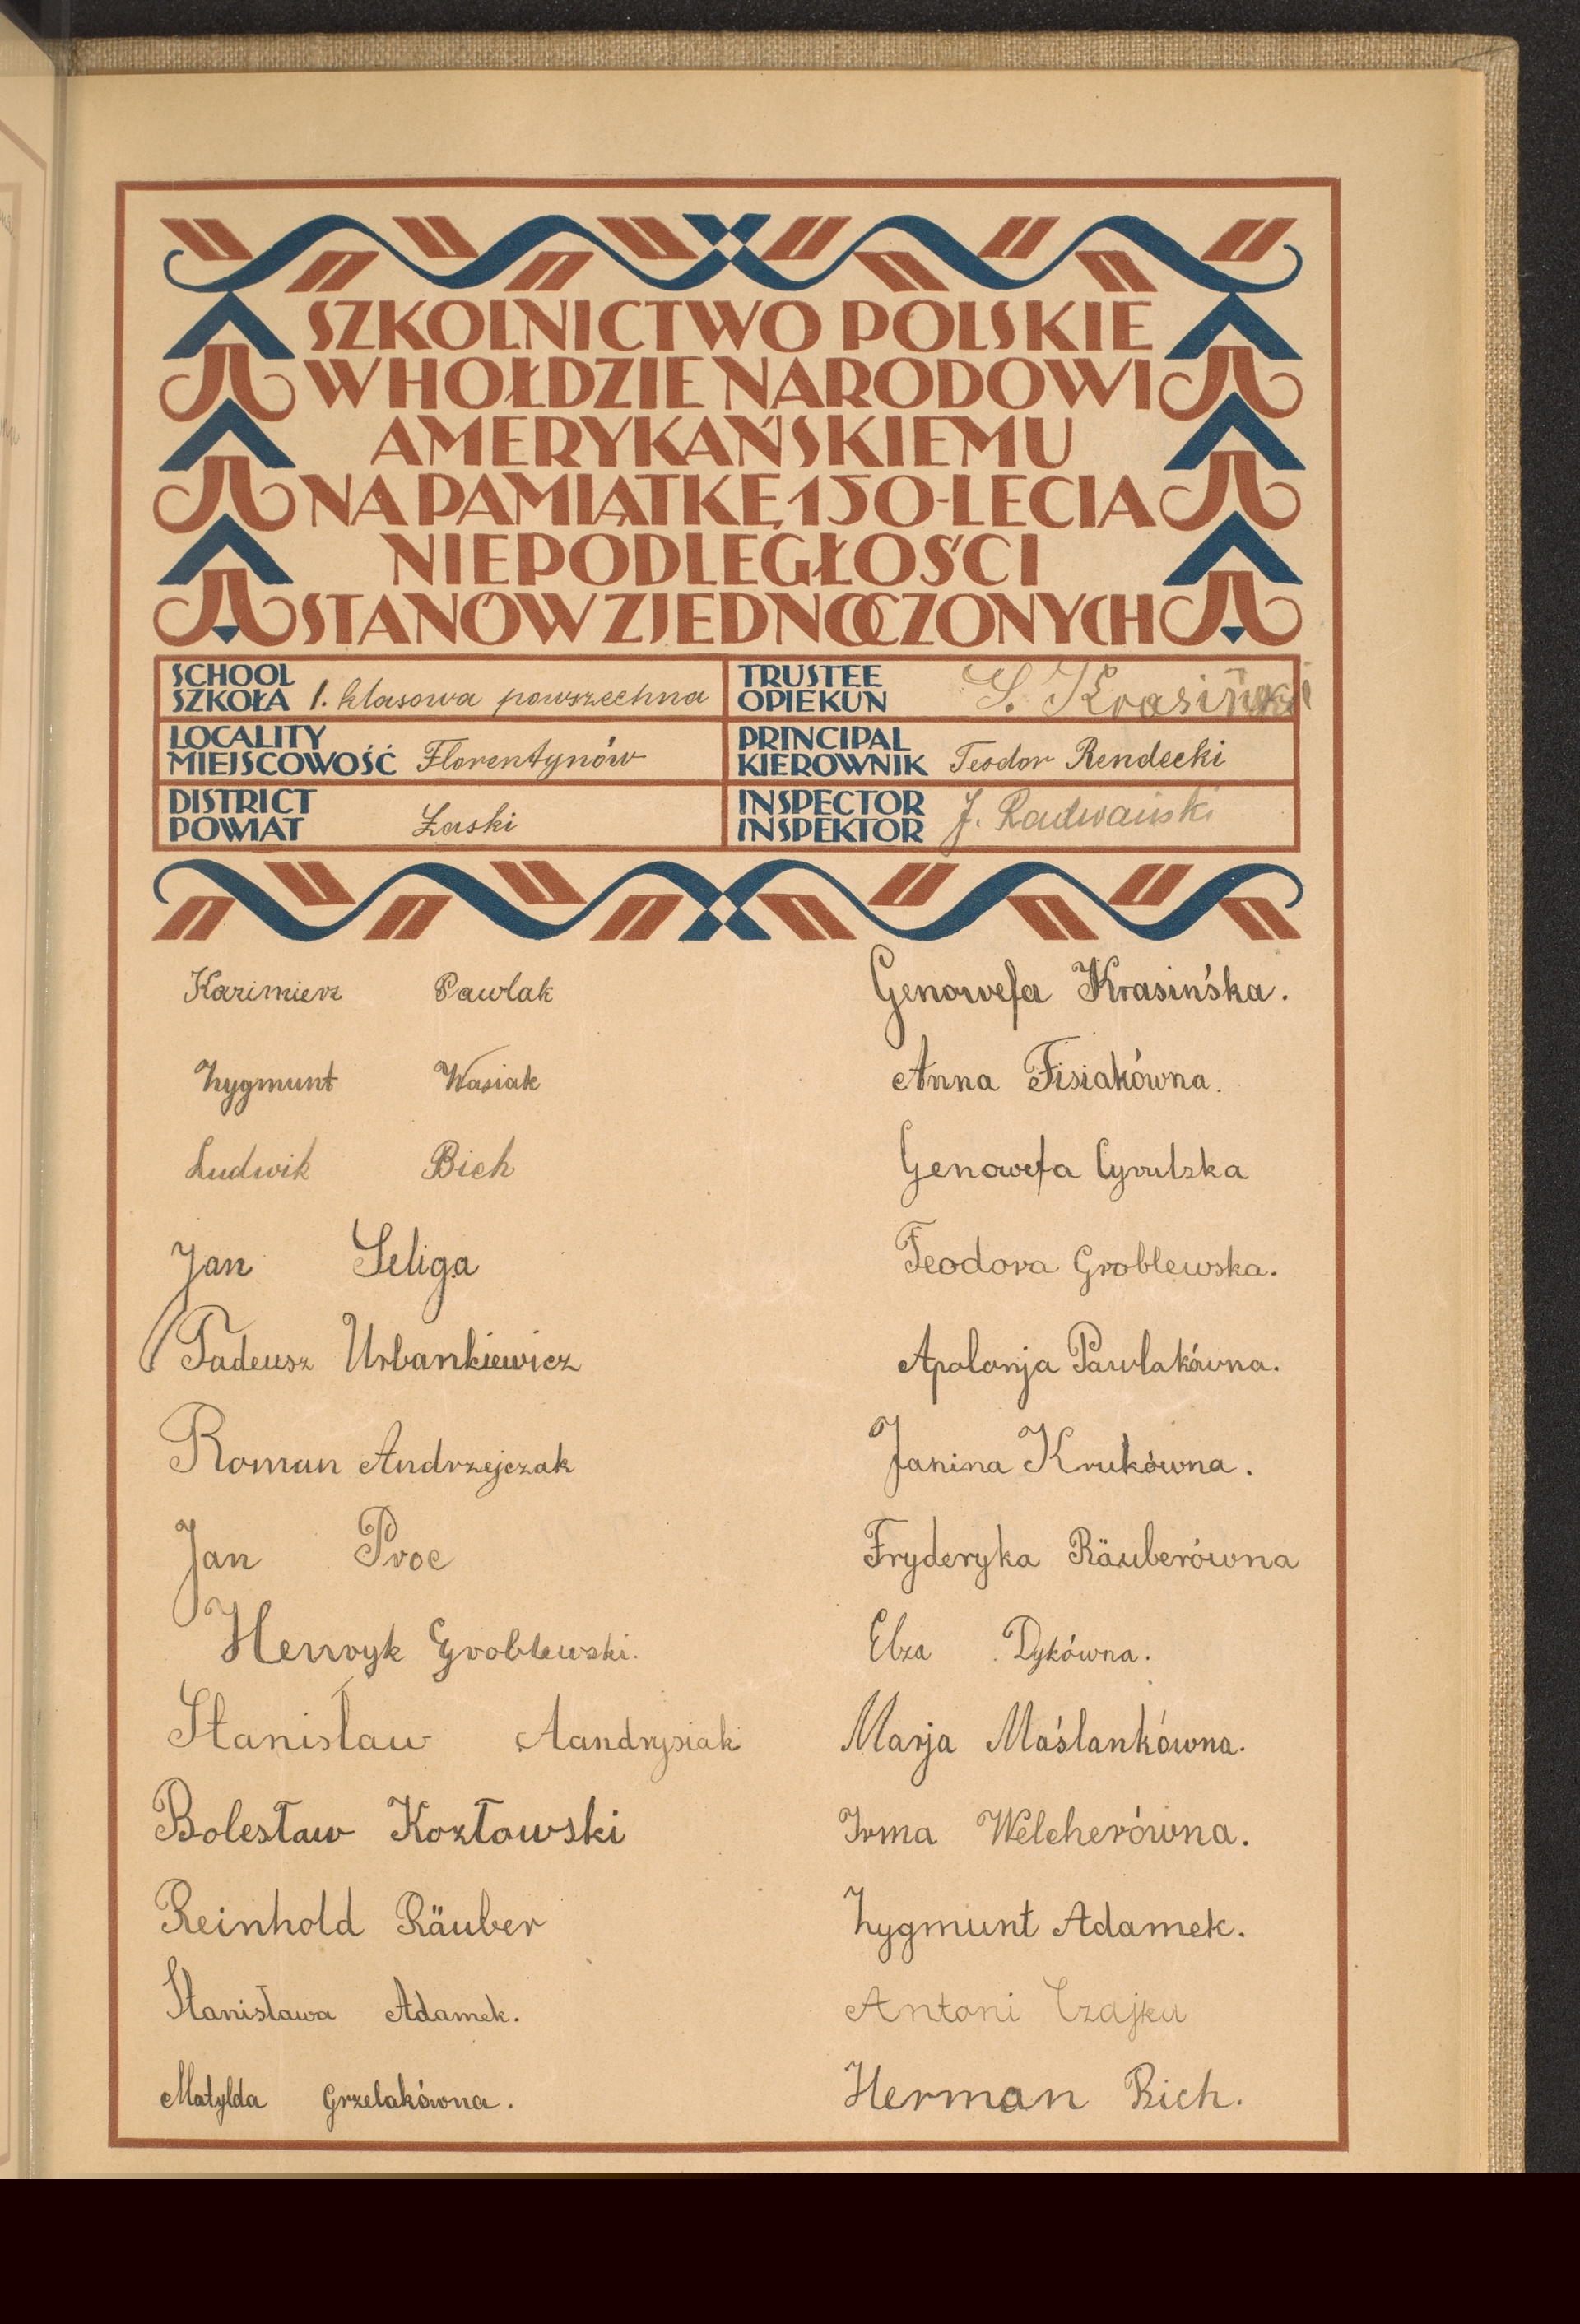 SZKOLNICTWO POLSKIE
W HOŁDZIE NARODOWI
AMERYKAŃSKIEMU
NA PAMIĄTKĘ 150-LECIA
NIEPODLEGŁOŚCI
STANÓW ZJEDNOCZONYCH
SCHOOL
SZKOŁA 1. klasowa powszechna
LOCALITY
MIEJSCOWOŚĆ Florentynów
DISTRICT
POWIAT Łaski
TRUSTEE
OPIEKUN S. Krasiński
PRINCIPAL
KIEROWNIK Teodor Rendecki
INSPECTOR
INSPEKTOR J. Radwański
Kazimierz Pawlak
Zygmunt Wasiak
Ludwik Bich
Jan Seliga
Tadeusz Urbankiewicz
Roman Andrzejczak
Jan Proc
Henryk Groblewski.
Stanisław Aandrysiak
Bolesław Kozłowski
Reinhold Räuber
Stanisława Adamek.
Matylda Grzelakówna.
Genowefa Krasińska.
Anna Fisiakówna.
Genowefa Cyrulska
Teodora Groblewska.
Apolonja Pawlakówna.
Janina Krukówna.
Fryderyka Räuberówna
Elza Dykówna.
Marja Maślankówna.
Irma Welcherówna.
Zygmunt Adamek.
Antoni Czajka
Herman Bich.